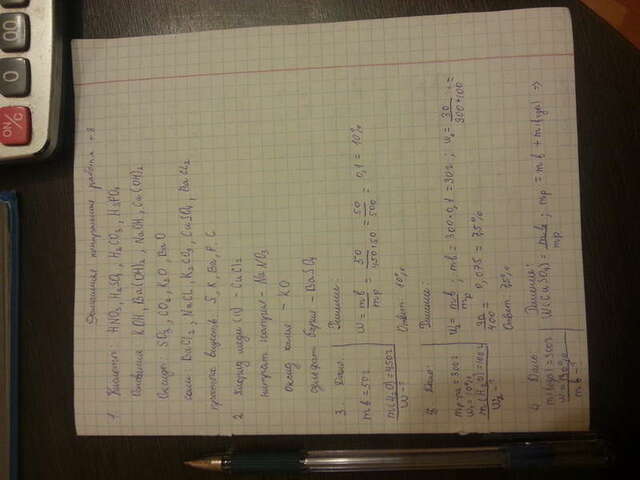 ON/C 0 00
Домашняя контрольная работа -3
1. Кислоты: HNO3, H2SO4, H2CO3, H3PO4
Основания: KOH, Ba(OH)2, NaOH, Ca(OH)2
Оксиды: SO3, CO2, K2O, BaO
соли: BaCl2, NaCL, K2CO3, CuSO4, BaCL2
простые вещества: S, K, Ba, P, C
2. Хлорид меди (II) - CuCl2
нитрат натрия - NaNO3
оксид калия - KO
сульфат бария - BaSO4
3. Дано:
mв = 50г
m(H2O) = 450г
W - ?
Решение:
W = mв/mр = 50/450+50 = 50/500 = 0,1 = 10%
Ответ: 10%
Дано:
mр-ра = 300г
W1 = 10%
m(H2O) = 100г
W2 - ?
Решение:
W1 = mв/mр; mв = 300·0,1 = 30г; W2 = 30/300+100 =
30/400 = 0,075 = 7,5%
Ответ: 7,5%
Дано:
m(воды) = 300г
mв - ?
Решение:
W(CuSO4) = mв/mр; mр = mв + m(воды) =>